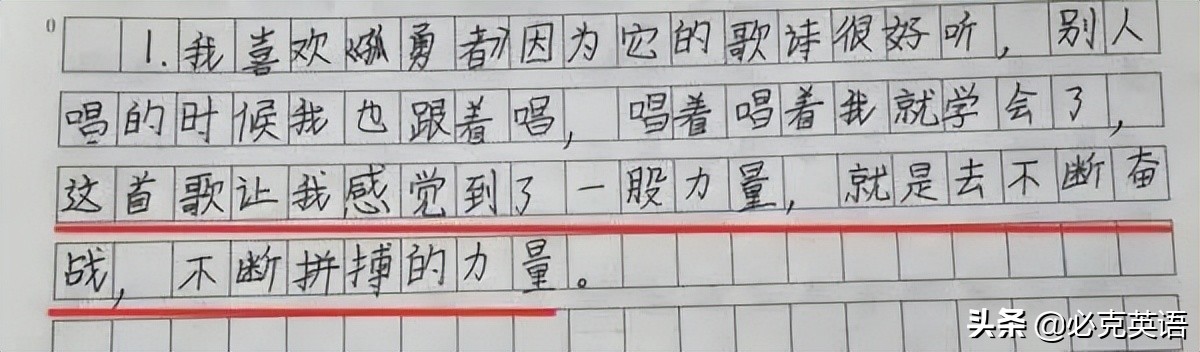 0
1.我喜欢《孤勇者》因为它的歌诗很好听，别人
唱的时候我也跟着唱，唱着唱着我就学会了，
这首歌让我感觉到了一股力量，就是去不断奋
战，不断拼搏的力量。
头条 @必克英语